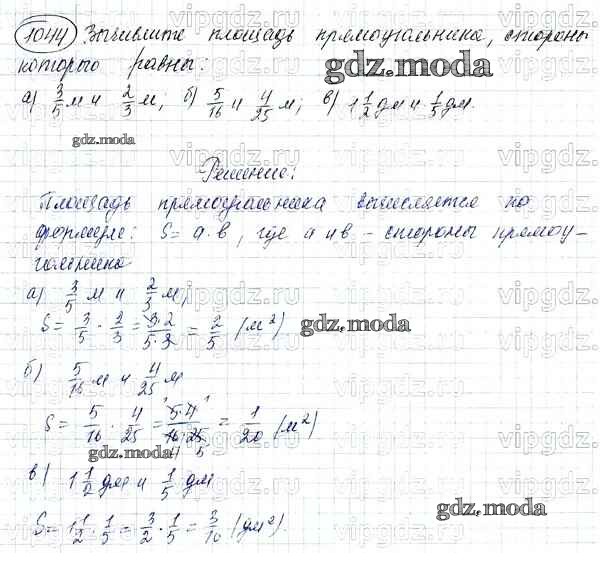 1044 Вычислите площадь прямоугольника, стороны
которого равны:
а) 3/5 м и 2/3 м; б) 5/16 и 4/25 м; в) 1 1/2 дм и 1/5 дм.
gdz.moda
gdz.moda
Решение:
Площадь прямоугольника вычисляется по
формуле: S = a · в, где а и в - стороны прямоу-
гольника
а) 3/5 м и 2/3 м,
S = 3/5 · 2/3 = 3·2/5·3 = 2/5 (м²)
gdz.moda
б) 5/16 м и 4/25 м
S = 5/16 · 4/25 = 5·4/16·25 = 1/20 (м²)
gdz.moda
в) 1 1/2 дм и 1/5 дм
gdz.moda
S = 1 1/2 · 1/5 = 3/2 · 1/5 = 3/10 (дм²).
vipgdz.ru